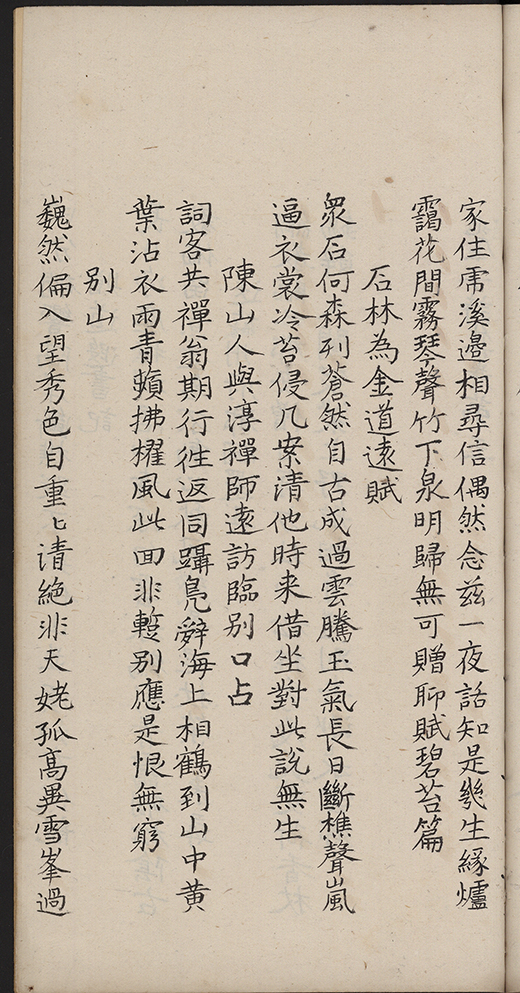 家住雷溪邊相尋信偶然念兹一夜話知是幾生緣爐
靄花間霧琴聲竹下泉明歸無可贈聊賦碧苔篇
石林為金道遠賦
眾石何森列蒼然自古成過雲騰玉氣長日斷樵聲嵐
逼衣裳冷苔侵几案清他時来借坐對此說無生
陳山人與淳禪師遠訪臨别口占
詞客共禪翁期行徃返同躡凫辤海上相鶴到山中黄
葉沾衣雨青蘋拂櫂風此回非蹔别應是恨無窮
别山
巍然偏入望秀色自重〻请絶非天姥孤高異雪峯過